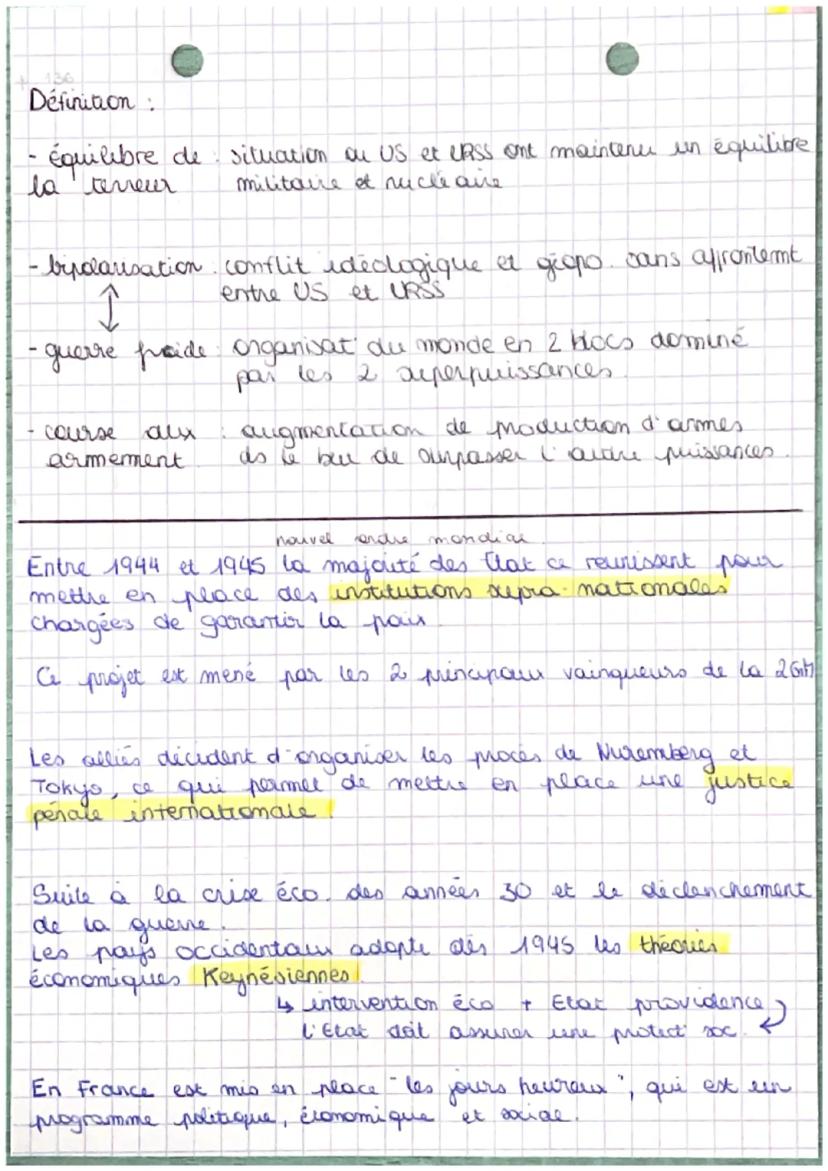 p 136
Définition :
- équilibre de : situation ou US et URSS ont maintenu un équilibre
la terreur militaire et nucléaire
- bipolarisation : conflit idéologique et géopo. sans affrontemt
entre US et URSS
- guerre froide : organisat° du monde en 2 blocs dominé
par les 2 superpuissances.
- course aux : augmentation de production d'armes
armement ds le but de surpasser l'autre puissances.
nouvel ordre mondial
Entre 1944 et 1945 la majorité des Etat ce reunissent pour
mettre en place des institutions supra-nationales
chargées de garantir la paix.
Ce projet est mené par les 2 principaux vainqueurs de la 2GM
Les alliés décident d'organiser les procès de Nuremberg et
Tokyo, ce qui permet de mettre en place une justice
pénale internationale.
Suite à la crise éco. des années 30 et le déclenchement
de la guerre.
Les pays occidentaux adopte dès 1945 les théories
économiques Keynésiennes.
↳ intervention éco + Etat providence
l'Etat doit assurer une protect° soc.
En France est mis en place "les jours heureux", qui est un
programme politique, économique et social.